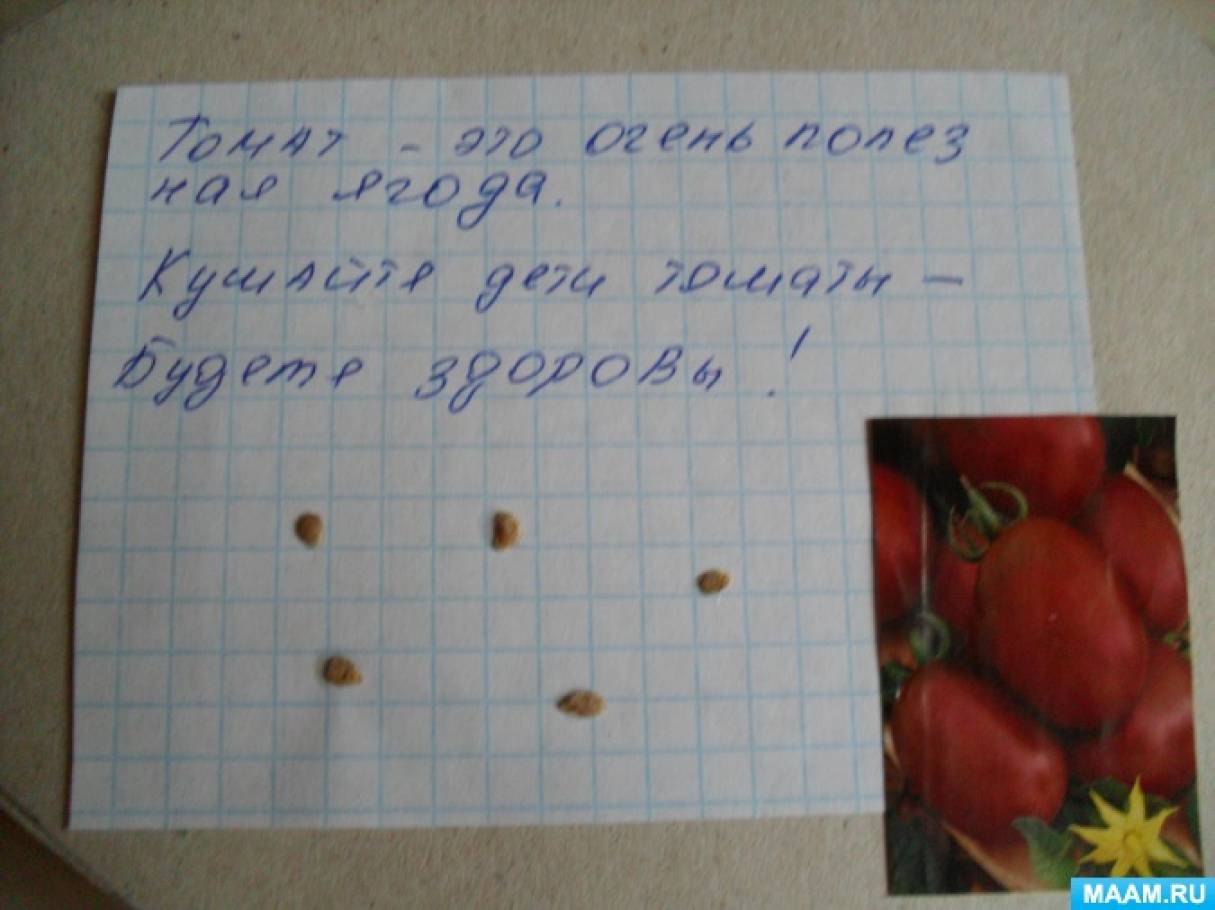 Томат - это очень полез
ная ягода.
Кушайте дети томаты —
Будете здоровы!
MAAM.RU